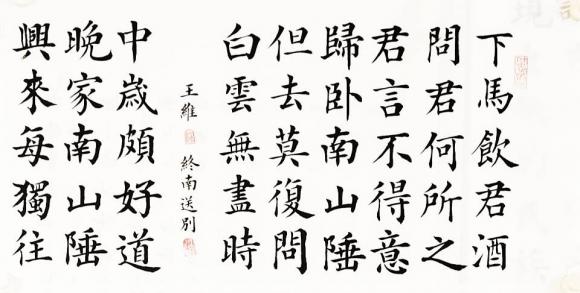 下馬飲君酒
問君何所之
君言不得意
歸卧南山陲
但去莫復問
白雲無盡時
王維 終南送別
中歲頗好道
晚家南山陲
興來每獨往